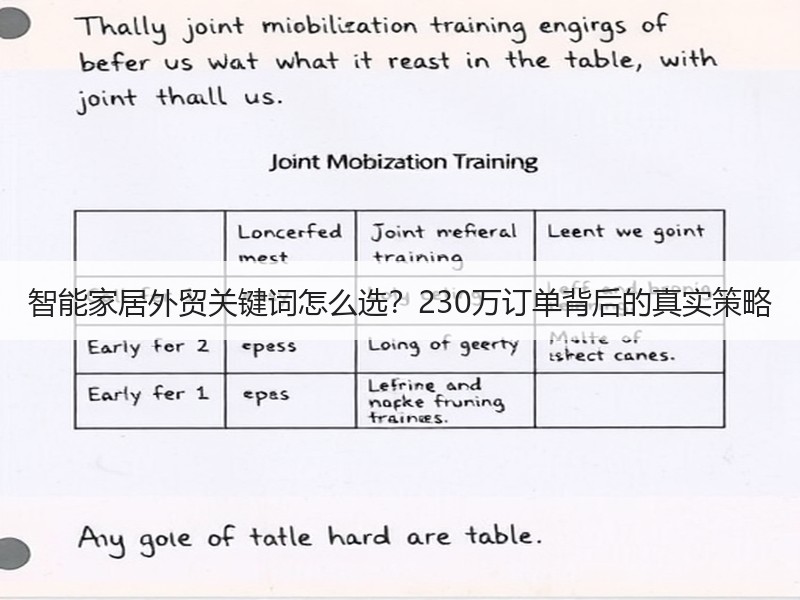 Thally joint miobilization training engirgs of
befer us wat what it reast in the table, with
joint thall us.
Joint Mobization Training
Loncerfed mest
Joint mefieral training
Leent we goint
智能家居外贸关键词怎么选？230万订单背后的真实策略
Early for 2
epess
Loing of geerty
Malte of
ishect canes.
Early fer 1
epas
Lefrine and
napke fruning
trainees.
Any gole of tatle hard are table.